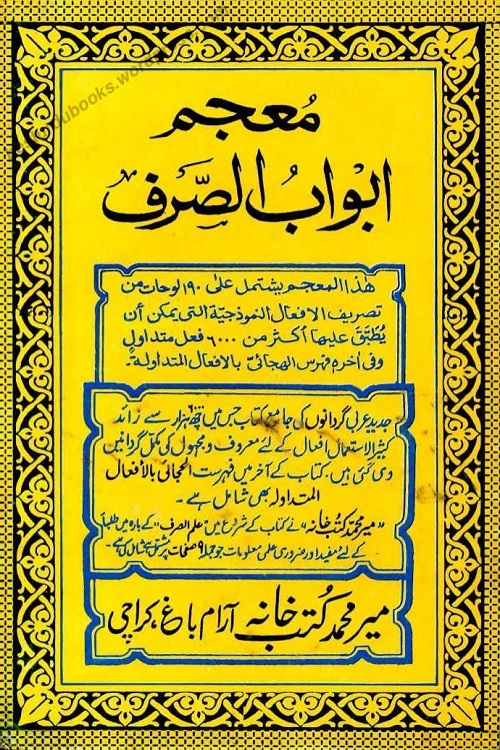 معجم
ابواب الصّرف
هذا المعجم يشتمل على ١٩٠ لوحات من
تصريف الافعال النموذجيّة التى يمكن أن
يُطبَّق عليها أكثر من ٦٠٠٠ فعل متداول
وفى أخره فهرس الهجائىّ بالافعال المتداولة.
جدید عربی گردانوں کی جامع کتاب جس میں چھ ہزار سے زائد
کثیر الاستعمال افعال کے لئے معروف و مجہول کی مکمل گردانیں
دی گئی ہیں، کتاب کے آخر میں فہرست الھجائی بالأفعال
المتداولہ بھی شامل ہے۔
"میر محمد کتب خانہ" نے کتاب کے شروع میں "علم الصرف" کے بارہ میں طلباء
کے لئے مفید اور ضروری علمی معلومات جو جملہ ۹ صفحات پر مشتمل
میر محمد کتب خانہ آرام باغ، کراچی